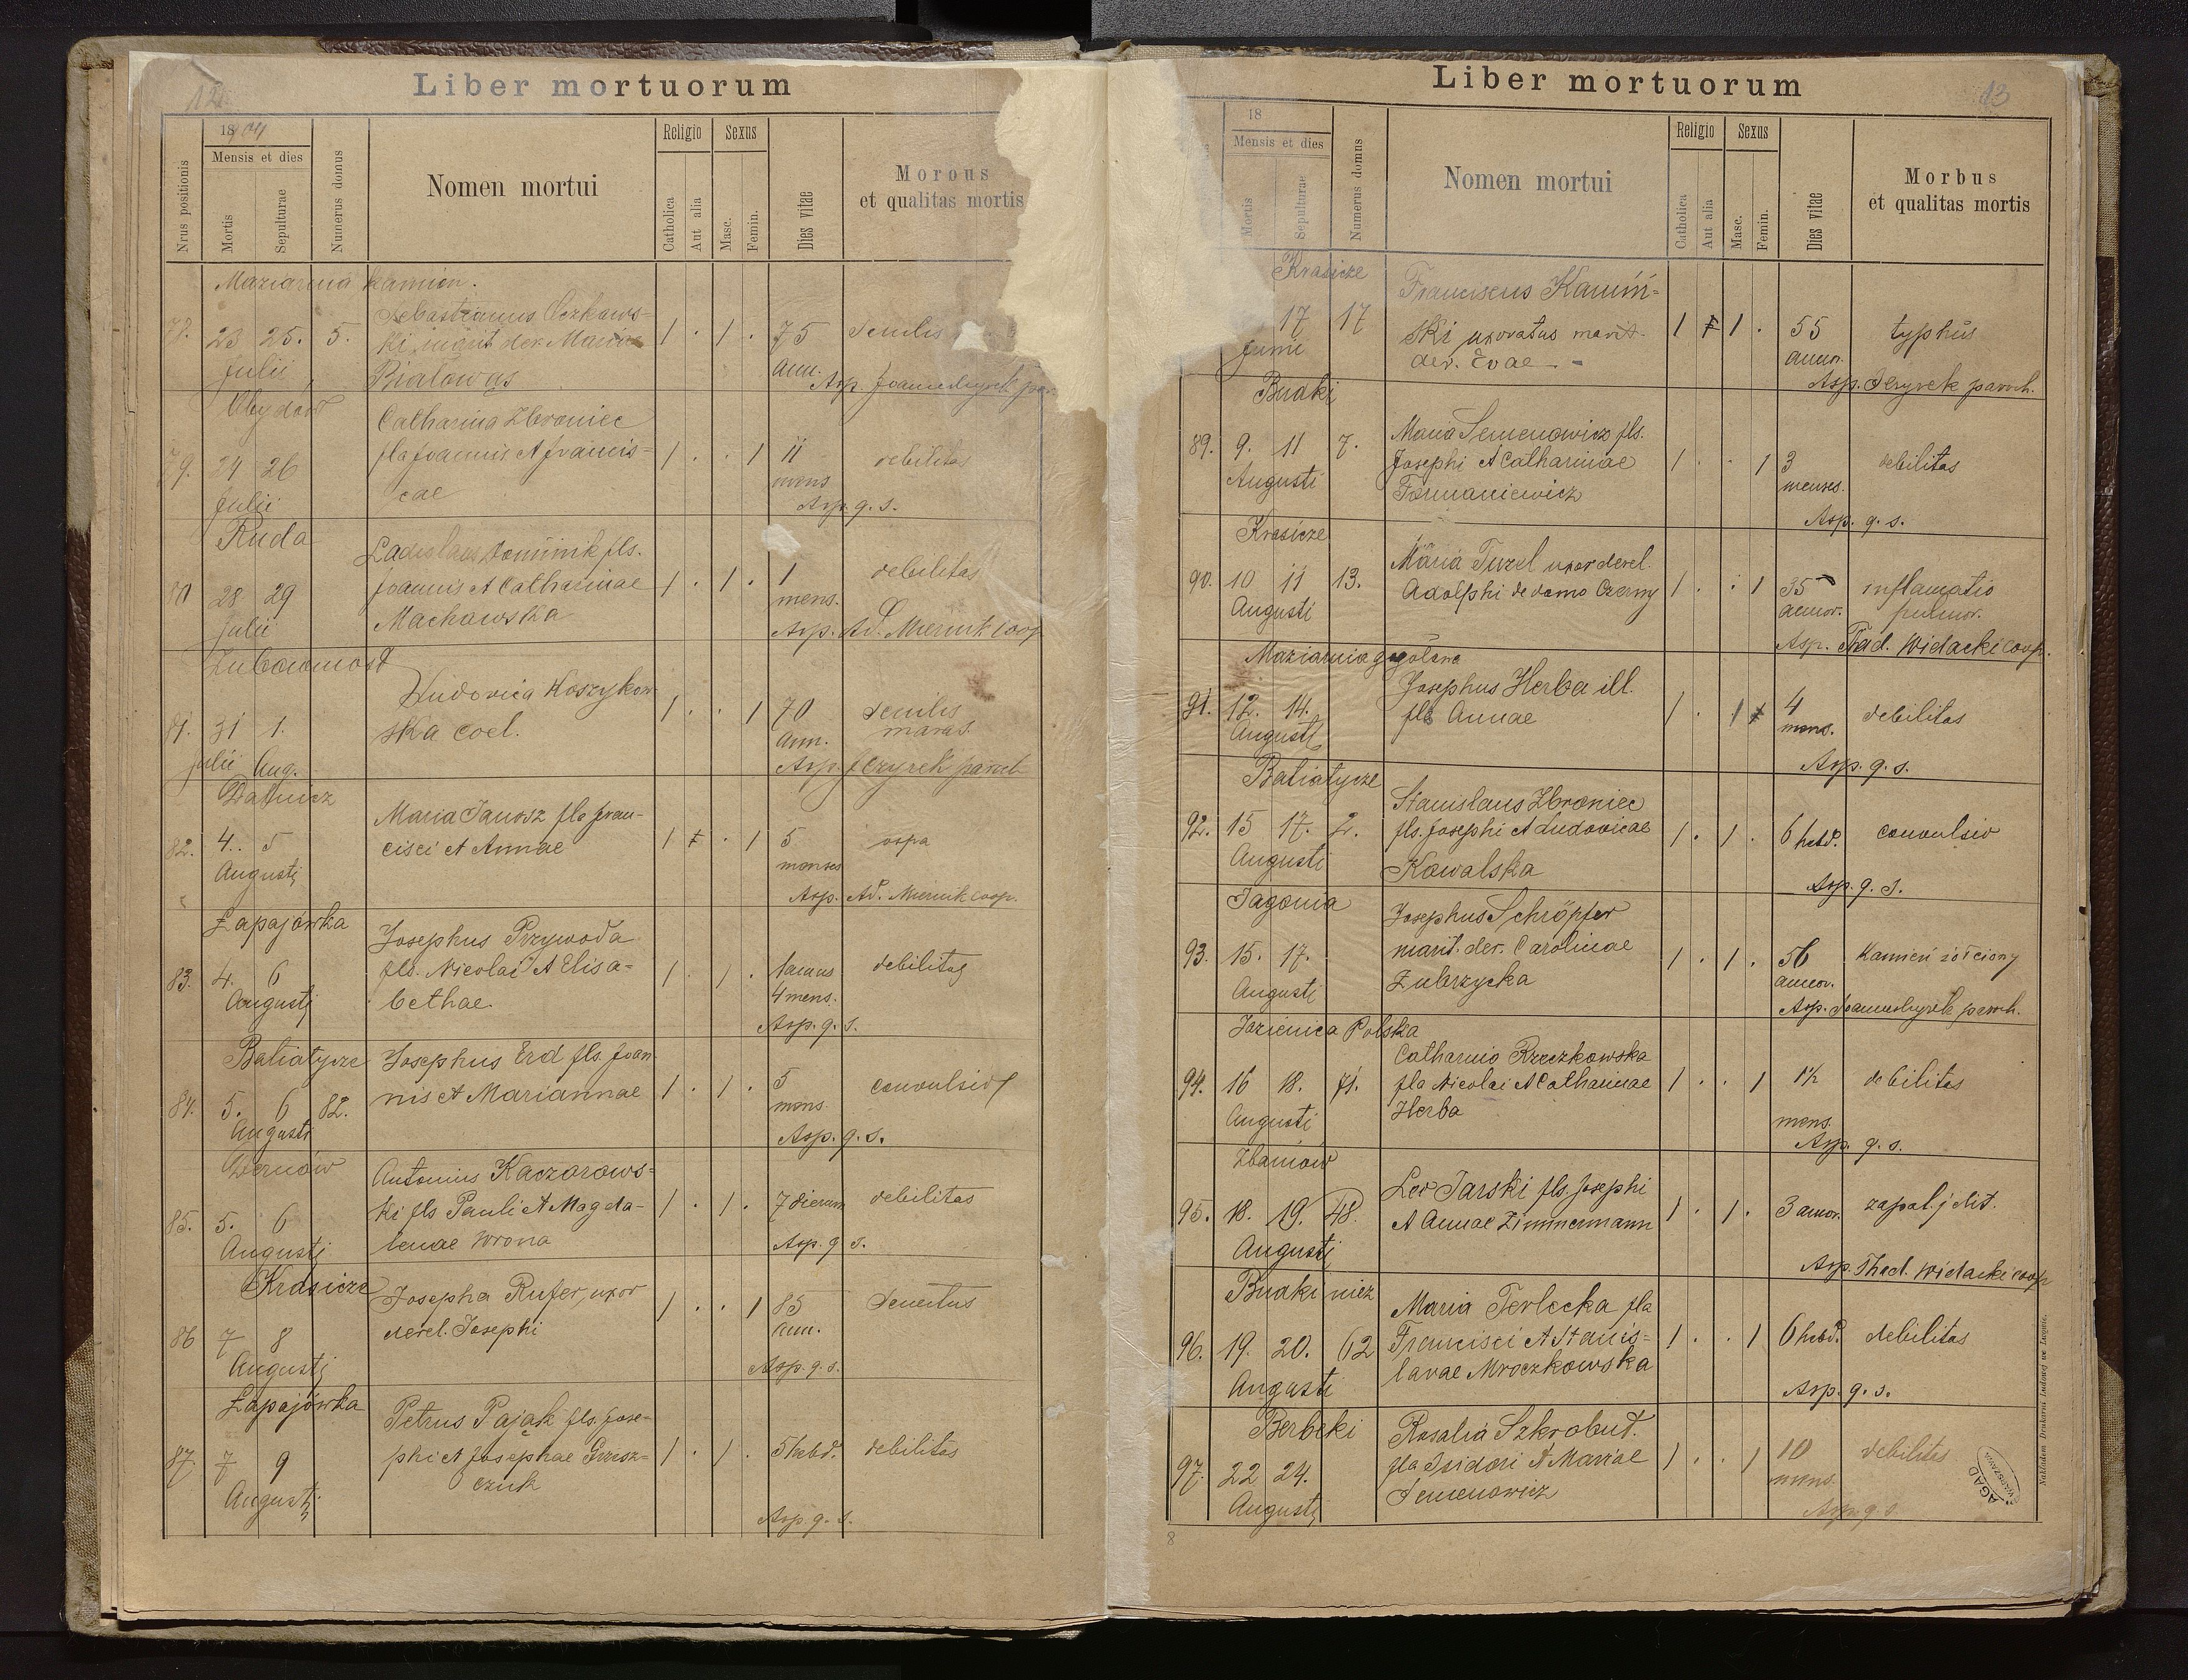 12
Liber mortuorum
1904
Nrus positionis
Mensis et dies
Mortis
Sepulturae
Numerus domus
Nomen mortui
Religio
Catholica
Aut alia
Sexus
Masc.
Femin.
Dies vitae
Morbus
et qualitas mortis
Maziarnia Kamion.
78. 23 25. 5. Sebastianus
marit. der. Mariae 1 . 1 . 75 senilis
Julii Białowąs ann.
Asp.
Obydów
Catharina Zbroniec
79. 24 26 fla Joannis et Francis- 1 . . 1 11 debilitas
Julii cae mens
Asp. q. s.
Ruda
Ladislaus Dominik fls.
80 28 29 Joannis et Catharinae 1 . 1 . 1 debilitas
Julii Machowska mens.
Asp. Ad. Miernik coop
Ludovica Koszykow-
81. 31 1. ska coel. 1 . . 1 70 senilis
Julii Aug. ann. maras.
Asp. J Czyrek paroch
Dalnicz
Maria Janosz fla Fran-
82. 4. 5 cisci et Annae 1 . 1 5 ospa
Augusti menses
Asp. Ad. Miernik coop.
Łapajówka
Josephus Przywoda
83. 4. 6 fls. Nicolai et Elisa- 1 . 1 . 1 annus debilitas
Augusti bethae 4 mens.
Asp. q. s.
Batiatycze
Josephus Erd fls. Joan-
84. 5. 6 82. nis et Mariannae 1 . 1 . 5 convulsio
Augusti mens
Asp. q. s.
Dernów
Antonius Kaczorows-
85. 5. 6 ki fls Pauli et Magda- 1 . 1 . 7 dierum debilitas
Augusti lenae Wrona
Asp. q s.
Krasicze
Josepha Rufer, uxor 1 . . 1 85 senectus
86 7 8 derel. Josephi ann.
Augusti
Asp. q. s.
Łapajówka
Petrus Pająk fls. Jose-
87. 7 9 phi et Josephae Grzesz- 1 . 1 . 5 hebd. debilitas
Augusti czuk
Asp. q. s.
13
Liber mortuorum
18
Mensis et dies
Mortis
Sepulturae
Numerus domus
Nomen mortui
Religio
Catholica
Aut alia
Sexus
Masc.
Femin.
Dies vitae
Morbus
et qualitas mortis
Krasicze
Franciscus Kamiń-
17 17 ski uxoratus marit. 1 1 . 55 typhus
der. Evae annor.
Asp. J Czyrek paroch.
Budki
Maria Semenowicz fls.
89. 9. 11 7. Josephi et Catharinae 1 . . 1 3 debilitas
Augusti Formaniewicz menses.
Asp. q. s.
Krasicze
Maria Turel uxor derel.
90. 10 11 13. Adolphi de domo Czerny 1 . . 1 35 inflamatio
Augusti annor. pulmor.
Asp. Thad. Widacki coop.
Maziarnia
Josephus Herba ill.
91. 12. 14. fls Annae 1 . 1 4 debilitas
Augusti mens.
Asp. q. s.
Batiatycze
Stanislaus Zbroniec
92. 15 17. 2. fls. Josephi et Ludovicae 1 . 1 . 6 hebd. convulsio
Augusti Kowalska
Asp. q. s.
Jagonia
Josephus Schröpfer
93. 15. 17. marit. der. Carolinae 1 . 1 . 56 Kamień żółciowy
Augusti Zubrzycka annor.
Asp. Joannes Czyrek paroch.
Jazienica Polska
Catharina Rzeczkowska
94. 16 18. 71. fla Nicolai et Catharinae 1 . . 1 1½ debilitas
Augusti Herba mens.
Asp. q. s.
Zbaniow
Leo Jarski fls. Josephi
95. 18. 19. 48. et Annae Zimmermann 1 . 1 . 3 annor. zapal. jelit.
Augusti
Asp. Thad. Widacki coop
Budki niez
Maria Terlecka fla
96. 19. 20. 62 Francisci et Stanis- 1 . . 1 6 hebd. debilitas
Augusti lavae Mroczkowska
Asp. q. s.
Berbeki
Rosalia Szkrobut.
97. 22 24. fla Isidori et Mariae 1 . . 1 10 debilitas
Augusti Semenowicz mens.
Asp. q. s.
AGAD
WARSZAWA
Nakładem Drukarni Ludowej we Lwowie.
8